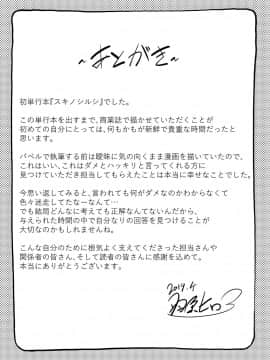 ~あとがき~
初単行本『スキノシルシ』でした。
この単行本を出すまで、商業誌で描かせていただくことが
初めての自分にとっては、何もかもが新鮮で貴重な時間だったと
思います。
バベルで執筆する前は曖昧に気の向くまま漫画を描いていたので、
これはいい、これはダメとハッキリと言ってくれる方に
見つけていただき担当してもらえたことは本当に幸せなことでした。
今思い返してみると、言われても何がダメなのかわからなくて
色々迷走してたな~なんて…
でも結局どんなに考えても正解なんてないんだから、
与えられた時間の中で自分なりの回答を見つけることが
大切なのかもしれませんね。
こんな自分のために根気よく支えてくださった担当さんや
関係者の皆さん、そして読者の皆さんに感謝を込めて。
本当にありがとうございます。
2019.4